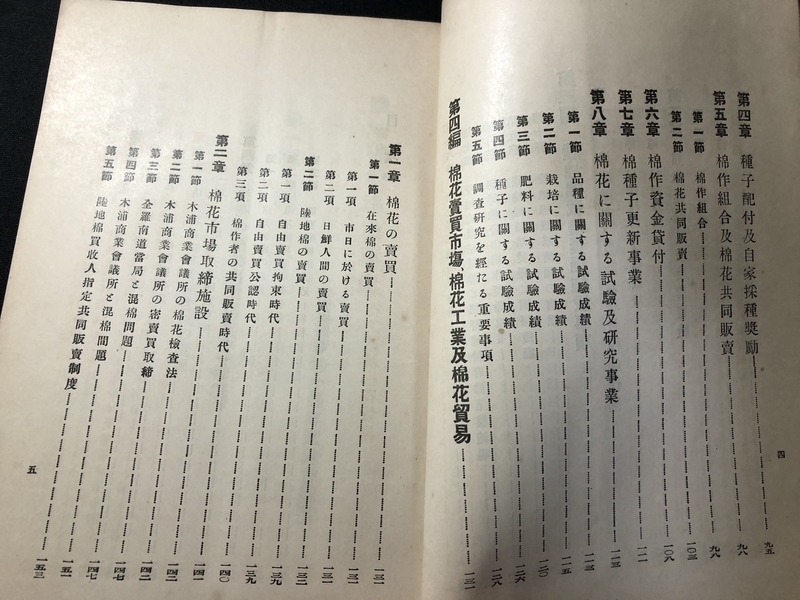 第四章 種子配付及自家採種獎勵 九五
第五章 棉作組合及棉花共同販賣 九八
第一節 棉作組合 九八
第二節 棉花共同販賣 一〇三
第六章 棉作資金貸付 一〇八
第七章 棉種子更新事業 一一一
第八章 棉花に關する試驗及研究事業 一一三
第一節 品種に關する試驗成績 一一三
第二節 栽培に關する試驗成績 一一五
第三節 肥料に關する試驗成績 一二〇
第四節 種子に關する試驗成績 一二六
第五節 調査研究を經たる重要事項 一二八
第四編 棉花賣買市場、棉花工業及棉花貿易 一三一
四
第一章 棉花の賣買 一三一
第一節 在來棉の賣買 一三一
第一項 市日に於ける賣買 一三一
第二項 日鮮人間の賣買 一三二
第二節 陸地棉の賣買 一三三
第一項 自由賣買拘束時代 一三三
第二項 自由賣買公認時代 一三九
第三項 棉作者の共同販賣時代 一三九
第二章 棉花市場取締施設 一四〇
第一節 木浦商業會議所の棉花檢查法 一四一
第二節 木浦商業會議所の密賣買取締 一四二
第三節 全羅南道當局と混棉問題 一四二
第四節 木浦商業會議所と混棉問題 一四七
第五節 陸地棉買收人指定共同販賣制度 一五三
五